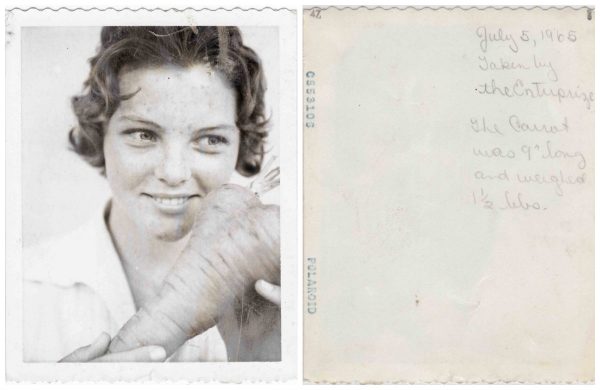 July 5, 1965
Taken by
the Enterprize
The Carrot
was 9" long
and weighed
1 1/2 lbs.
POLAROID